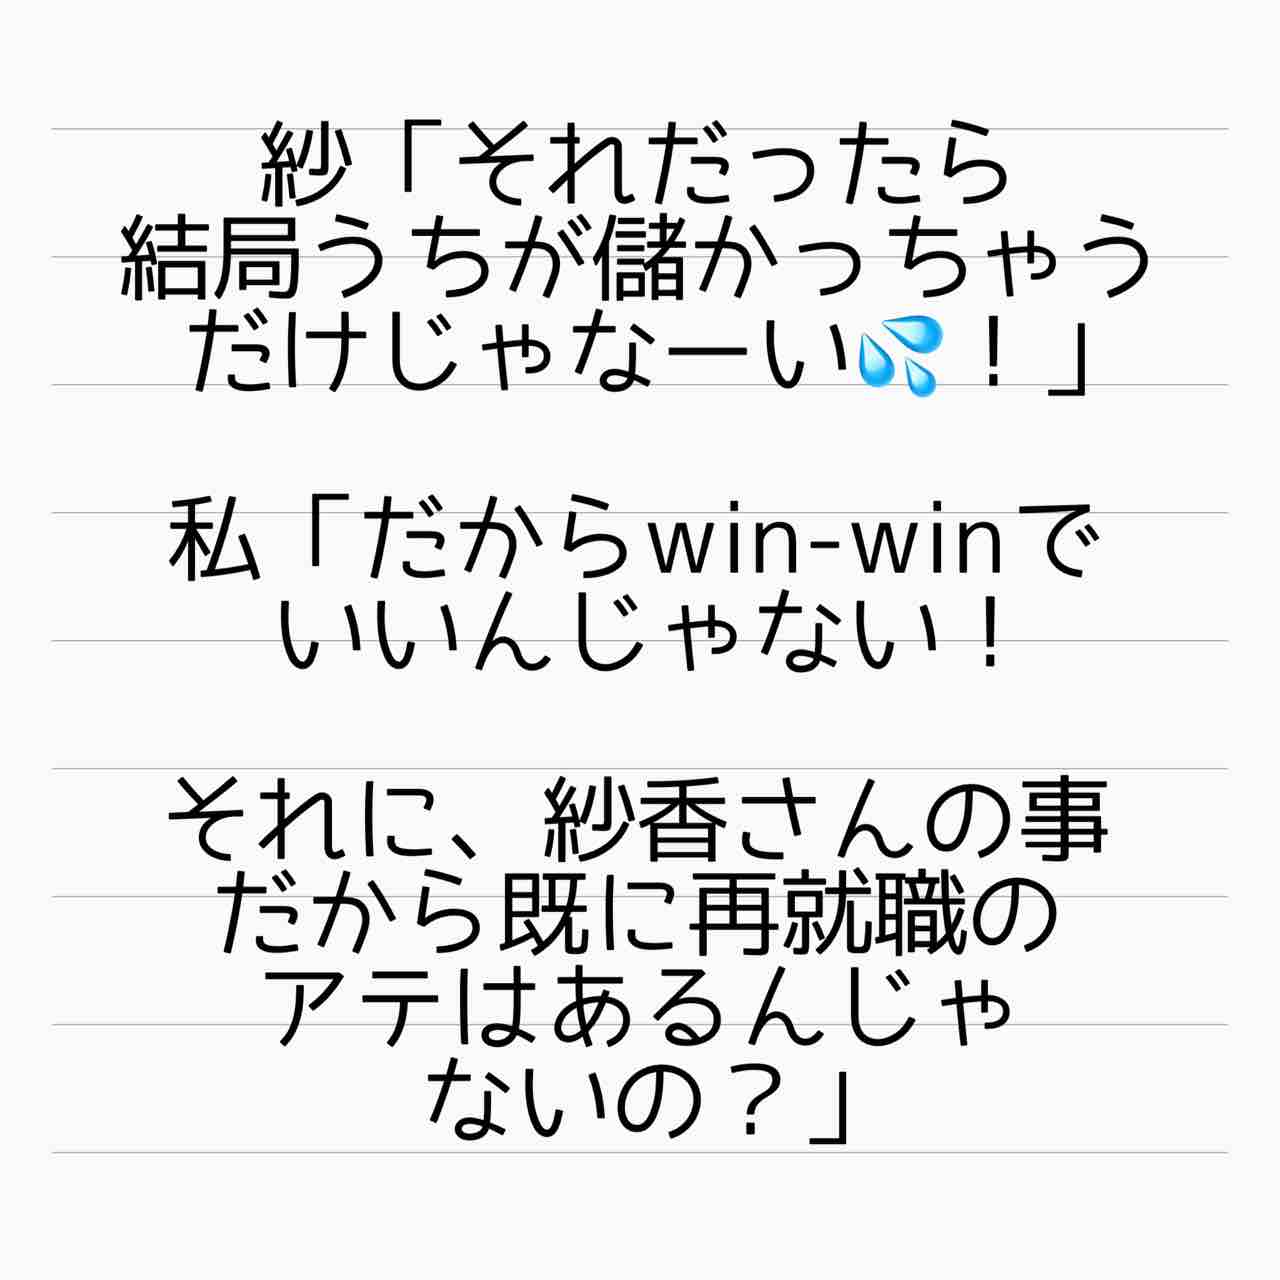 紗「それだったら
結局うちが儲かっちゃう
だけじゃなーい💦！」
私「だからwin-winで
いいんじゃない！
それに、紗香さんの事
だから既に再就職の
アテはあるんじゃ
ないの？」